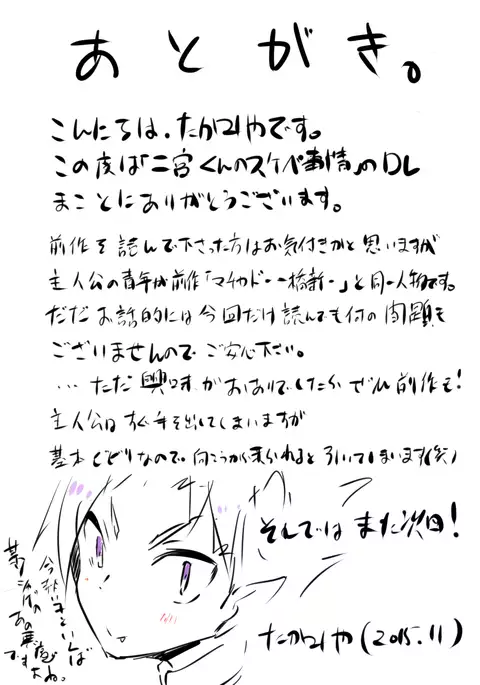 あとがき。
こんにちは、たかみやです。
この度は「二宮くんのスケベ事情」のDL
まことにありがとうございます。
前作を読んで下さった方はお気付きかと思いますが
主人公の青年が前作「マチカド-一橋新-」と同一人物です。
ただお話的には今回だけ読んでも何の問題も
ございませんのでご安心下さい。
…ただ興味がおありでしたらぜひ前作も!
主人公はすぐ手を出してしまいますが
基本なので、向こうから来られると引いてしまいます(笑)
それではまた次回!
たかみや(2015.11)